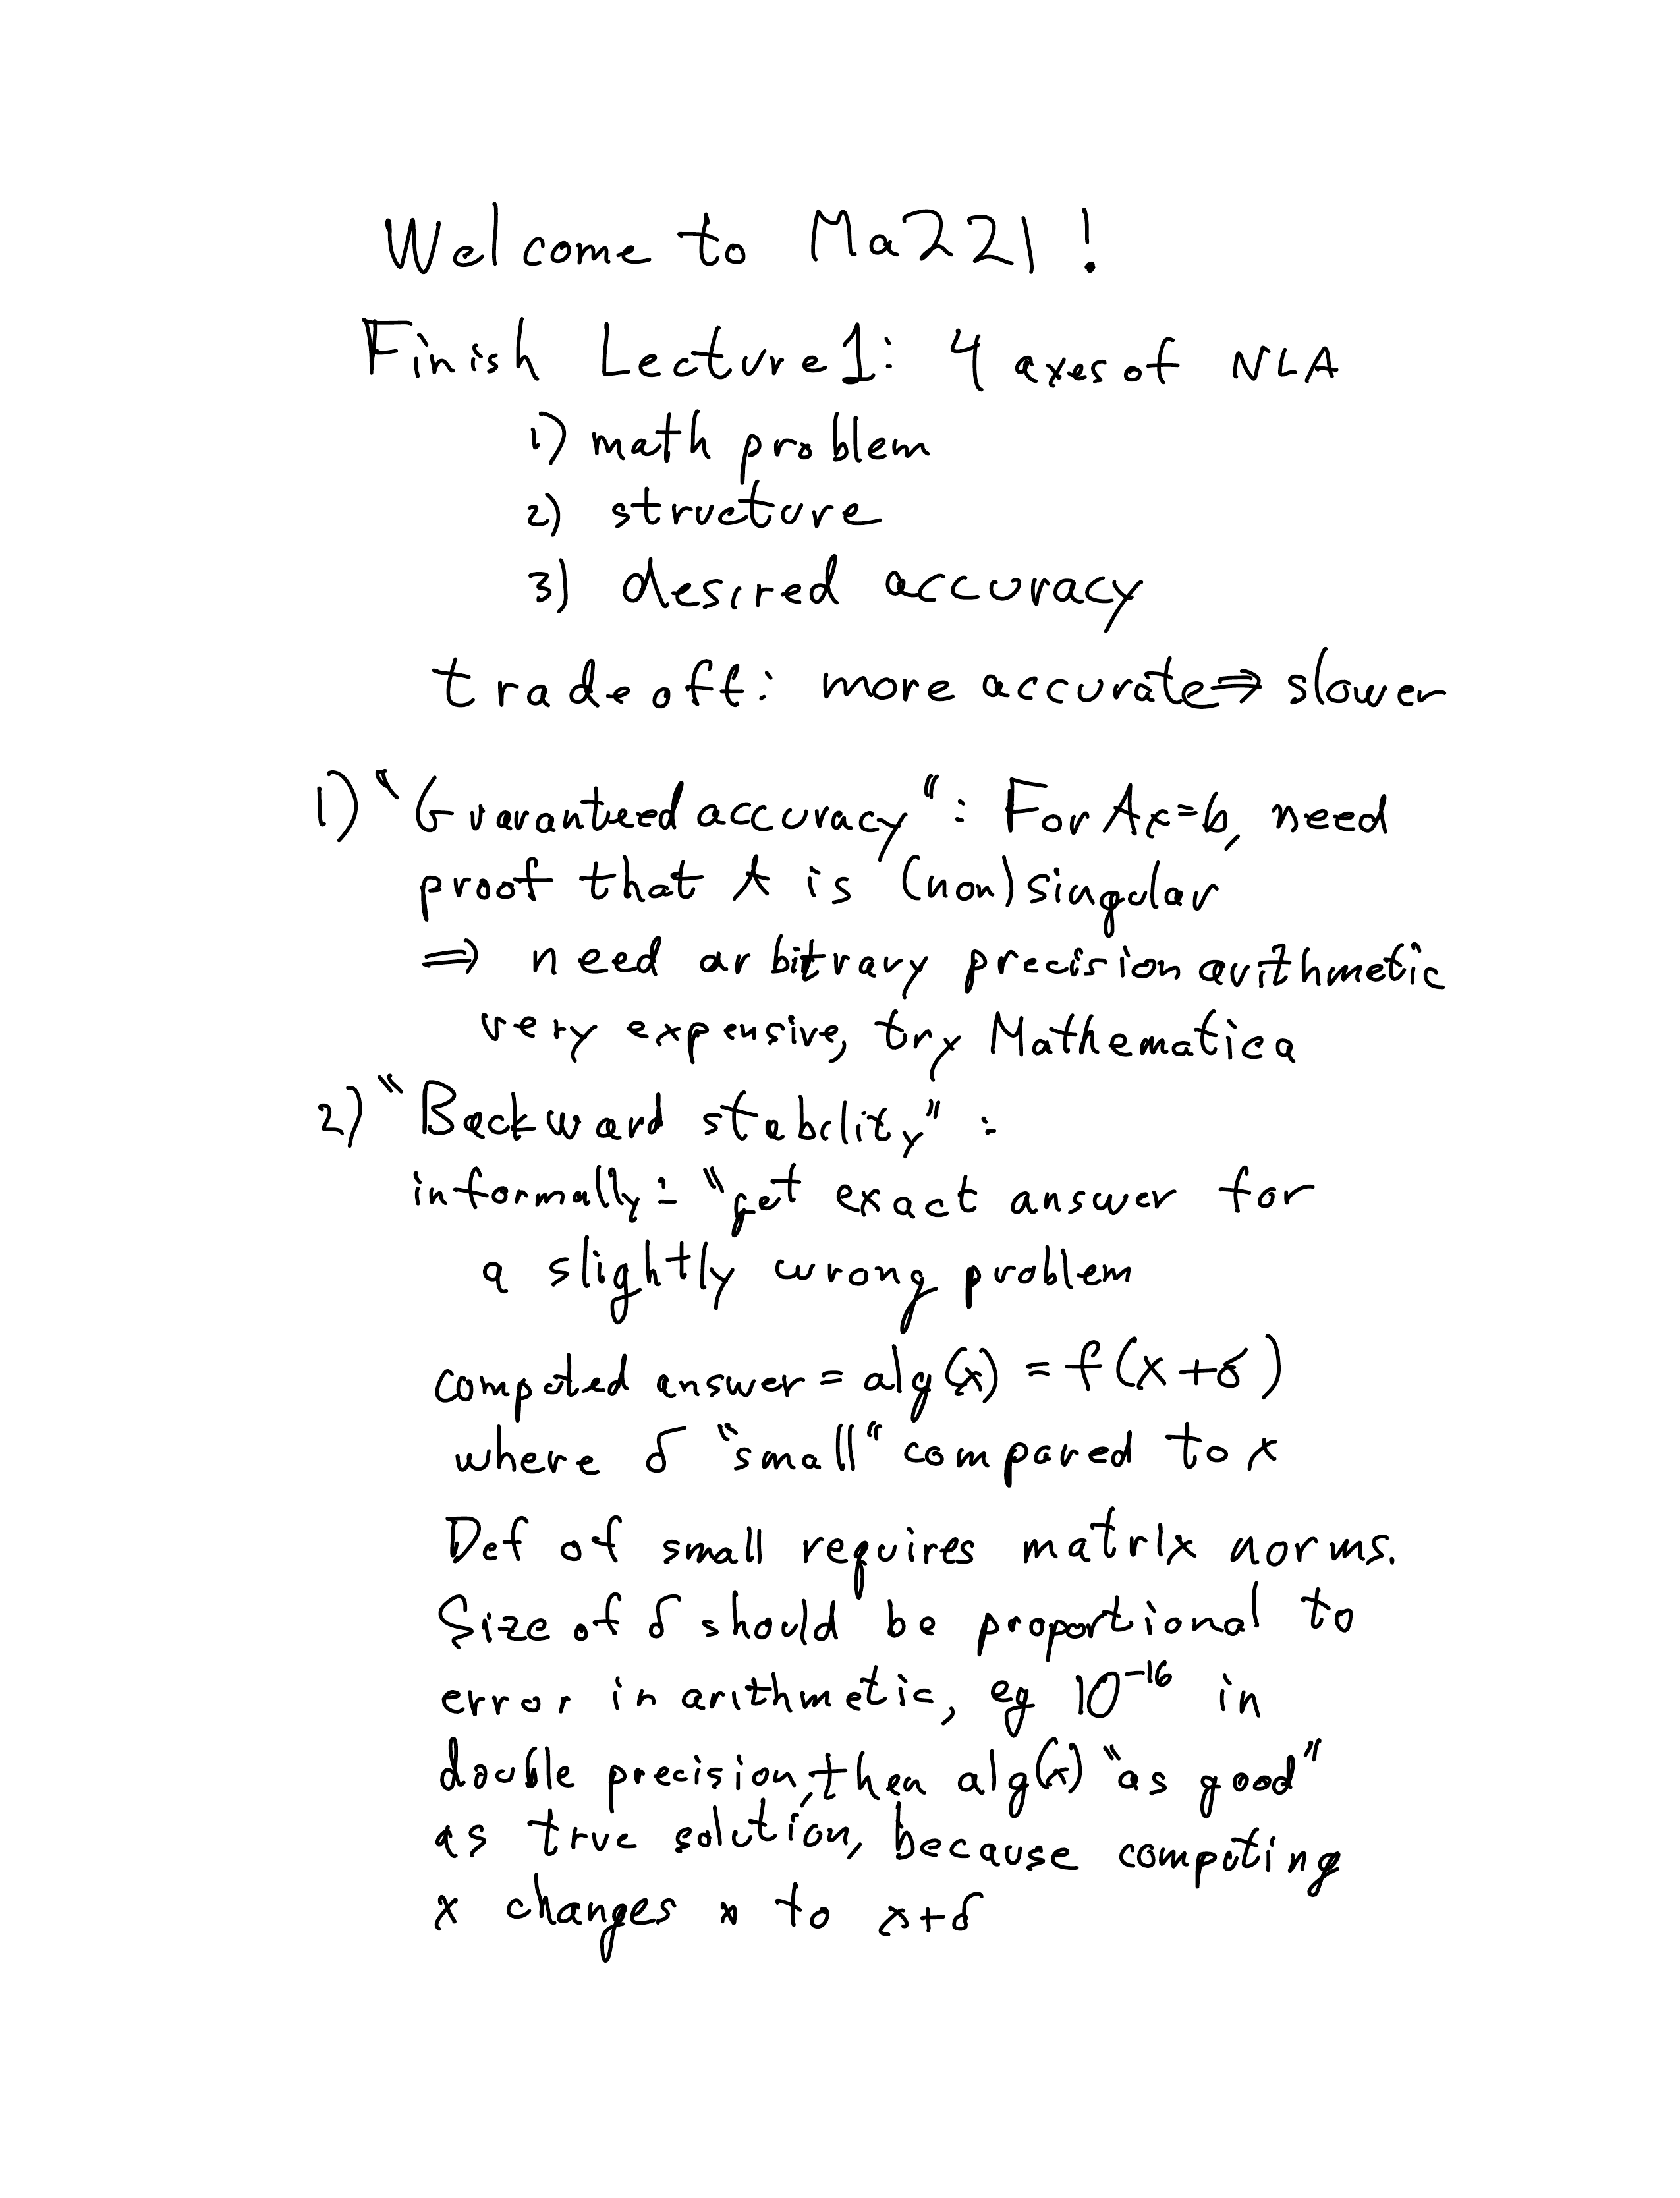 Welcome to Ma221!
Finish Lecture 1: 4 axes of NLA
1) math problem
2) structure
3) desired accuracy
tradeoff: more accurate ⇒ slower
1) "Guaranteed accuracy": For Ax=b, need
proof that A is (non)singular
⇒ need arbitrary precision arithmetic
very expensive, try Mathematica
2) "Backward stability":
informally: "get exact answer for
a slightly wrong problem
computed answer = alg(x) = f(x+δ)
where δ "small" compared to x
Def of small requires matrix norms.
Size of δ should be proportional to
error in arithmetic, eg 10⁻¹⁶ in
double precision, then alg(x) "as good"
as true solution, because computing
x changes x to x+δ